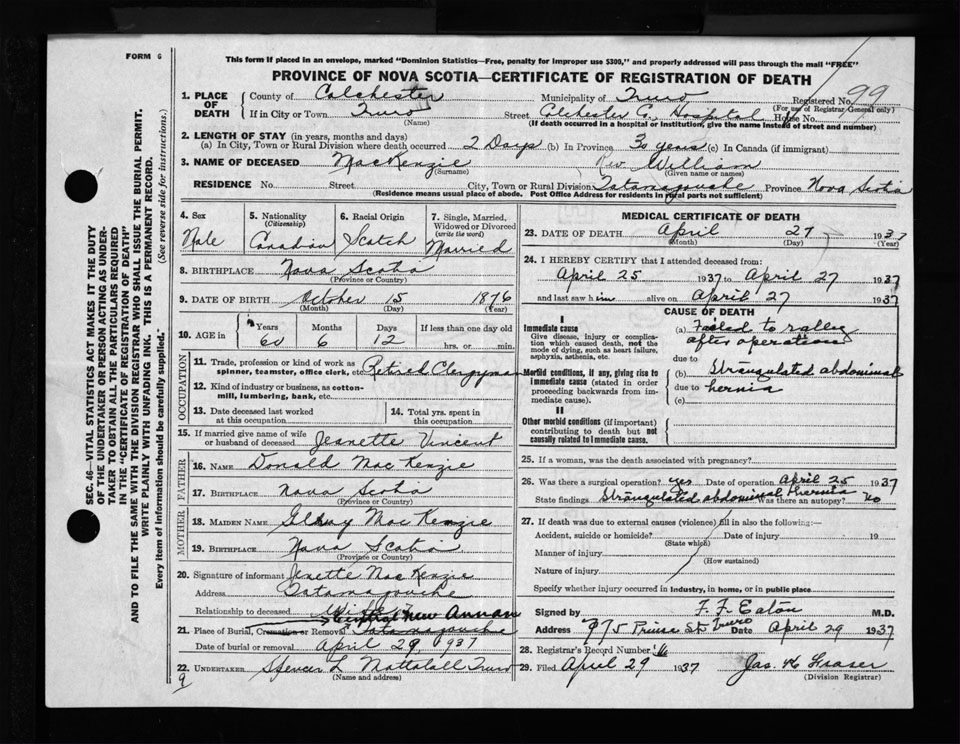 FORM 6
SEC. 46—VITAL STATISTICS ACT MAKES IT THE DUTY
OF THE UNDERTAKER OR PERSON ACTING AS UNDER-
TAKER TO OBTAIN ALL THE PARTICULARS REQUIRED
IN THE "CERTIFICATE OF REGISTRATION OF DEATH"
AND TO FILE THE SAME WITH THE DIVISION REGISTRAR WHO SHALL ISSUE THE BURIAL PERMIT.
WRITE PLAINLY WITH UNFADING INK. THIS IS A PERMANENT RECORD.
Every item of information should be carefully supplied. (See reverse side for instructions.)
This form if placed in an envelope, marked "Dominion Statistics—Free, penalty for improper use $300," and properly addressed will pass through the mail "FREE"
PROVINCE OF NOVA SCOTIA—CERTIFICATE OF REGISTRATION OF DEATH
1. PLACE OF DEATH County of Colchester Municipality of Truro Registered No. 99
(For use of Registrar General only)
If in City or Town Truro Street Colchester Co. Hospital House No.
(Name) (If death occurred in a hospital or institution, give the name instead of street and number)
2. LENGTH OF STAY (in years, months and days)
(a) In City, Town or Rural Division where death occurred 2 Days (b) In Province 30 years (c) In Canada (if immigrant)
3. NAME OF DECEASED MacKenzie Rev. William
(Surname) (Given name or names)
RESIDENCE No. Street City, Town or Rural Division Tatamagouche Province Nova Scotia
(Residence means usual place of abode. Post Office Address for residents in rural parts not sufficient)
4. Sex Male
5. Nationality (Citizenship) Canadian
6. Racial Origin Scotch
7. Single, Married, Widowed or Divorced (write the word) Married
8. BIRTHPLACE Nova Scotia
(Province or Country)
9. DATE OF BIRTH October 15 1876
(Month) (Day) (Year)
10. AGE in Years 60 Months 6 Days 12 If less than one day old hrs. or min.
OCCUPATION
11. Trade, profession or kind of work as spinner, teamster, office clerk, etc. Retired Clergyman
12. Kind of industry or business, as cotton-mill, lumbering, bank, etc.
13. Date deceased last worked at this occupation
14. Total yrs. spent in this occupation
15. If married give name of wife or husband of deceased Jeanette Vincent
FATHER
16. NAME Donald MacKenzie
17. BIRTHPLACE Nova Scotia
(Province or Country)
MOTHER
18. MAIDEN NAME MacKenzie
19. BIRTHPLACE Nova Scotia
(Province or Country)
20. Signature of informant Jenette MacKenzie
Address Tatamagouche
Relationship to deceased Wife
New Annan
21. Place of Burial, Cremation or Removal Tatamagouche
Date of burial or removal April 29, 1937
22. UNDERTAKER Spencer L Truro
(Name and address)
9
MEDICAL CERTIFICATE OF DEATH
23. DATE OF DEATH April 27 1937
(Month) (Day) (Year)
24. I HEREBY CERTIFY that I attended deceased from:
April 25 1937 to April 27 1937
and last saw him alive on April 27 1937
CAUSE OF DEATH
I
Immediate cause
Give disease, injury or complication which caused death, not the mode of dying, such as heart failure, asphyxia, asthenia, etc.
(a) Failed to rally after operation
due to
Morbid conditions, if any, giving rise to immediate cause (stated in order proceeding backwards from immediate cause).
(b) Strangulated abdominal hernia
due to
(c)
II
Other morbid conditions (if important) contributing to death but not causally related to immediate cause.
25. If a woman, was the death associated with pregnancy?
26. Was there a surgical operation? yes Date of operation April 25 1937
State findings Strangulated abdominal hernia Was there an autopsy? No
27. If death was due to external causes (violence) fill in also the following:—
Accident, suicide or homicide? Date of injury 19
(State which)
Manner of injury
(How sustained)
Nature of injury
Specify whether injury occurred in industry, in home, or in public place
Signed by F. F. Eaton M.D.
Address 975 Prince St Truro Date April 29 1937
28. Registrar's Record Number
29. Filed April 29 1937 Jas. H. Fraser
(Division Registrar)